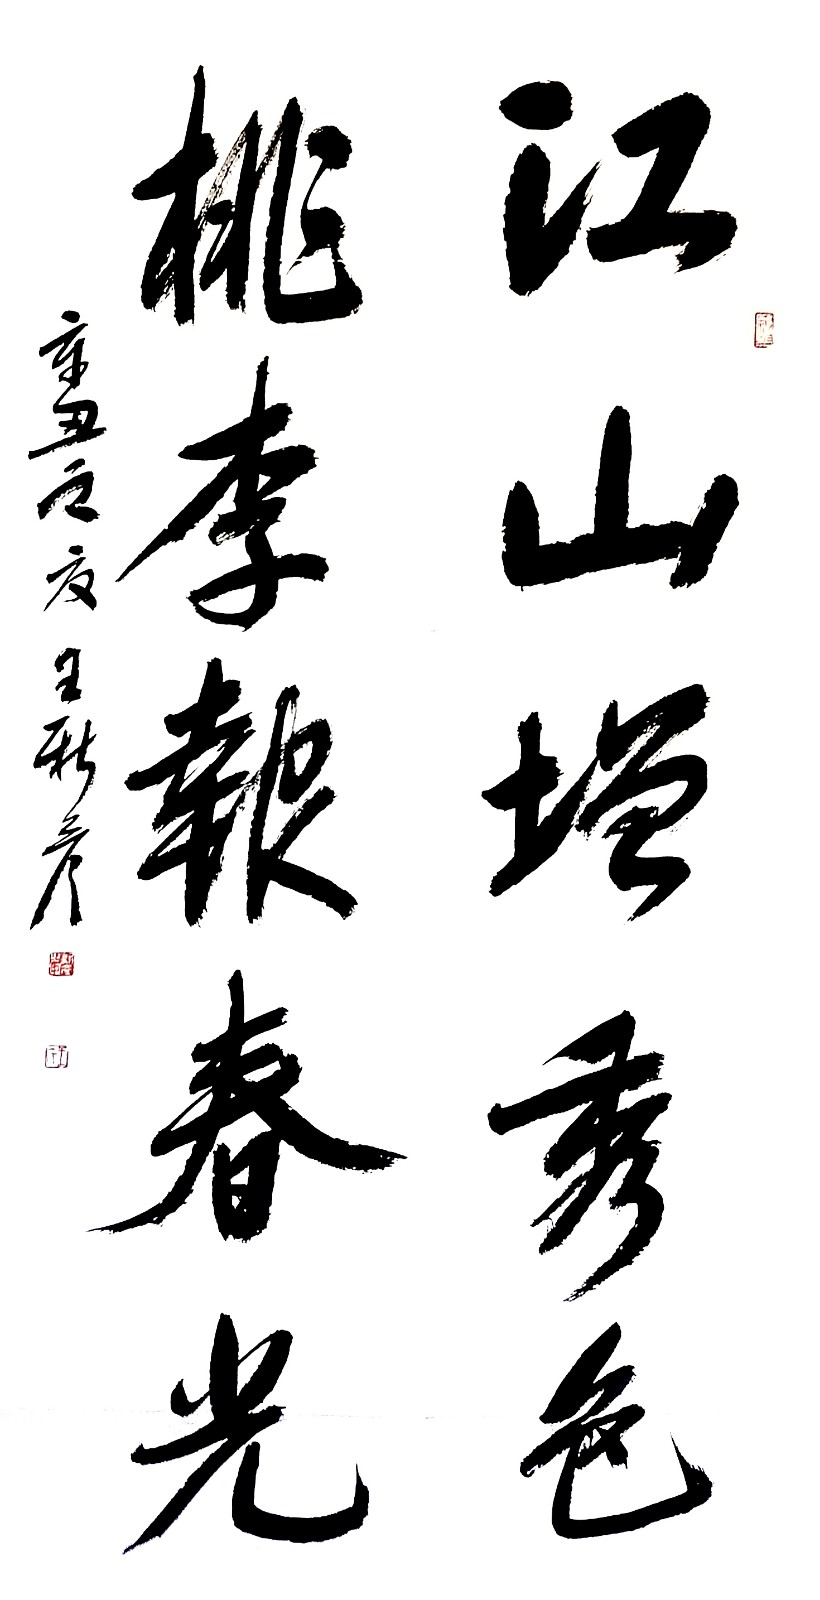 江山增秀色
桃李報春光
辛丑之夏王新彦